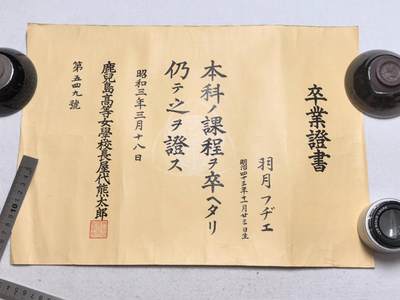 卒業證書
羽月フヂエ
明治四十三年十一月廿三日生
本科ノ課程ヲ卒ヘタリ
仍テ之ヲ證ス
昭和三年三月十八日
鹿兒島高等女學校長屋代熊太郎
第五四九號